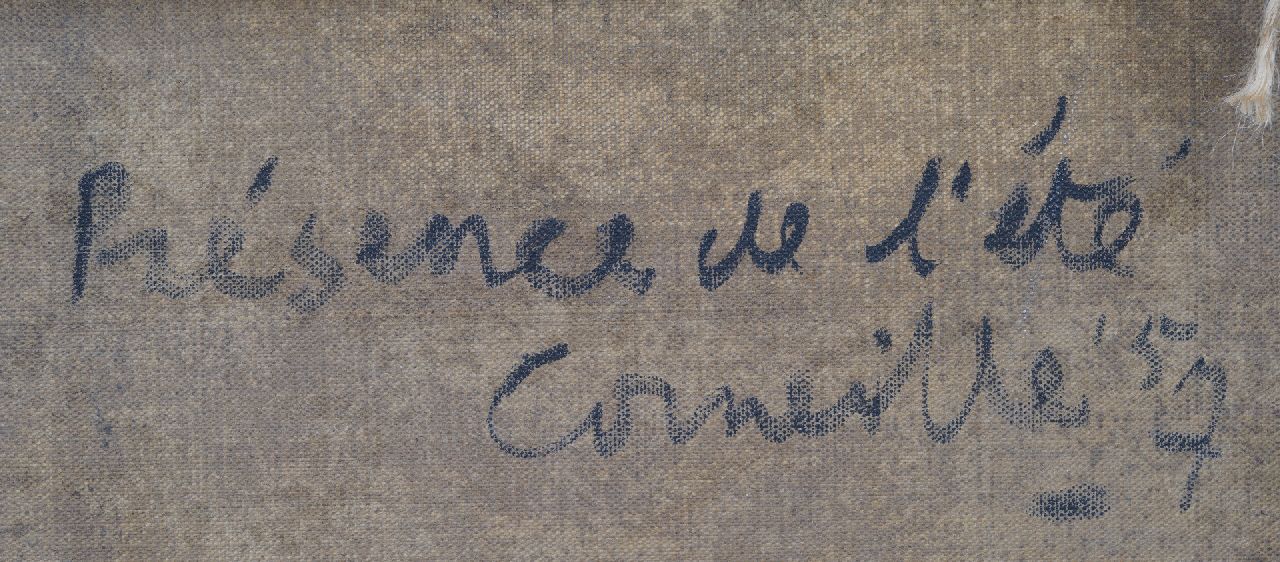 Présence de l'été
Corneille '57